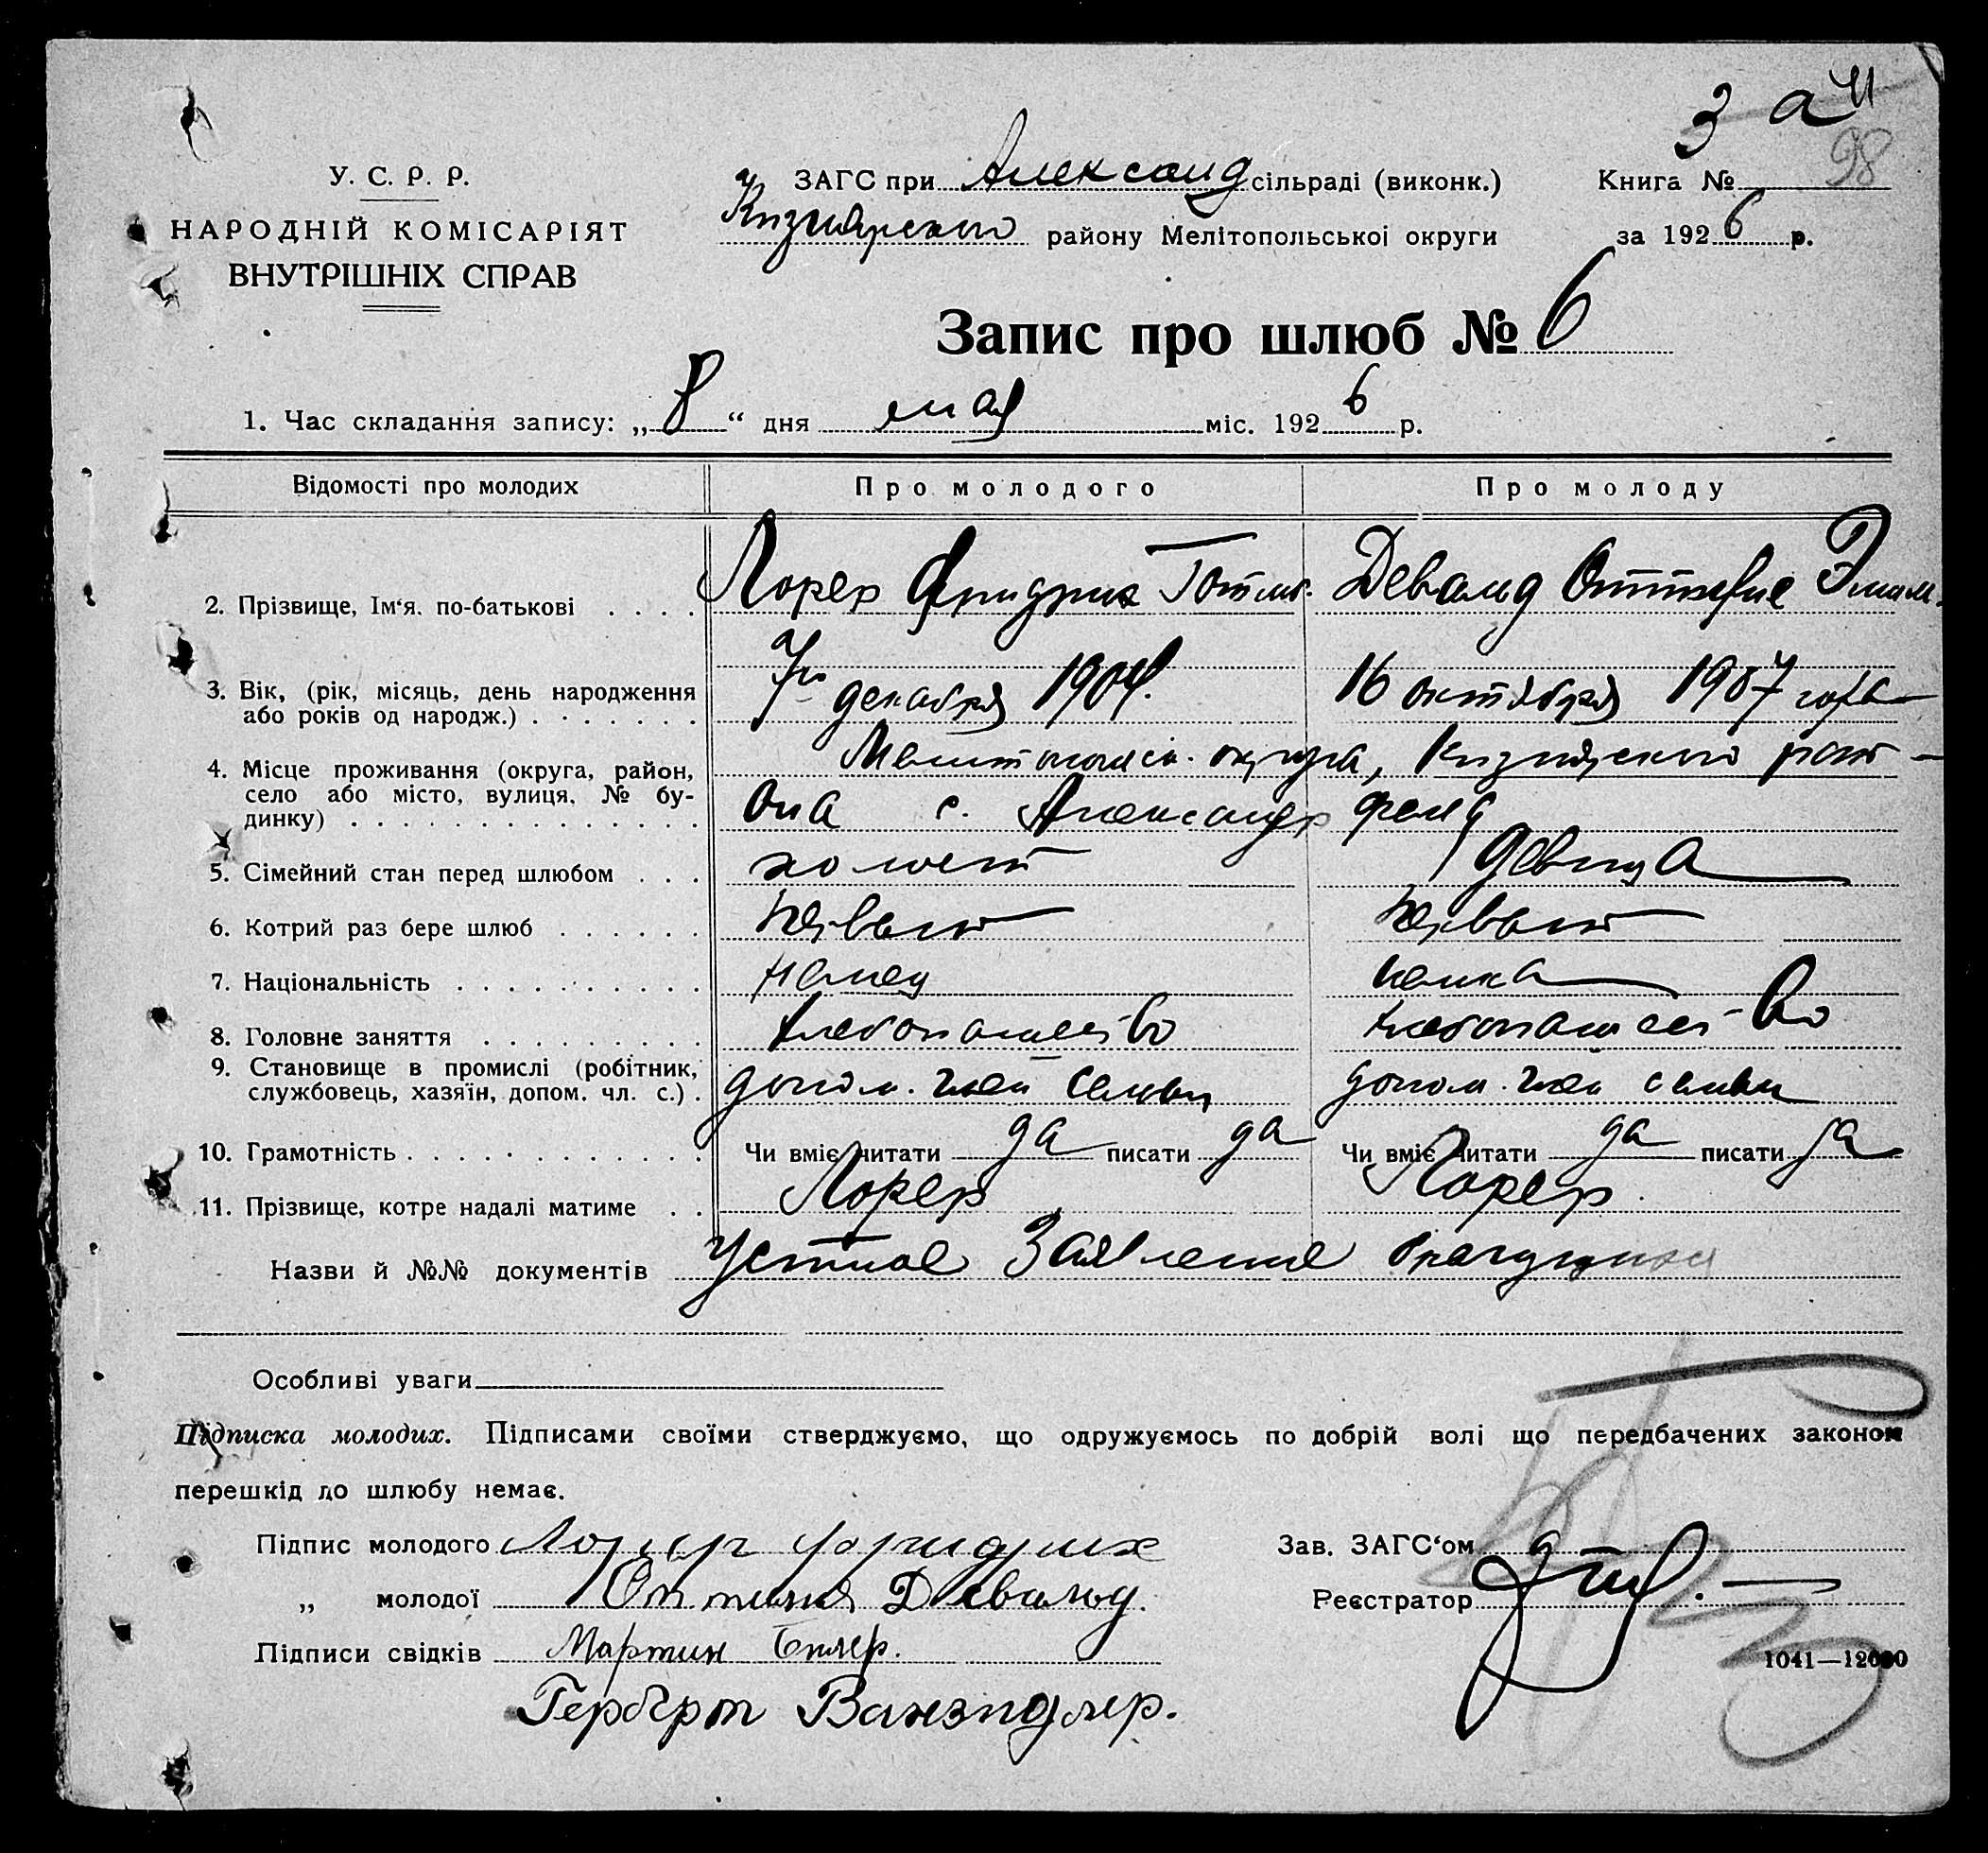 З а 41
98
У. С. Р. Р.
НАРОДНІЙ КОМІСАРІЯТ
ВНУТРІШНІХ СПРАВ
ЗАГС при Александ сільраді (виконк.) Книга №
Кизиярского району Мелітопольської округи за 1926 р.
Запис про шлюб № 6
1. Час складання запису: „8“ дня мая міс. 1926 р.
Відомості про молодих Про молодого Про молоду
2. Прізвище, Ім‘я. по-батькові Лорер Фридрих Готлиб. Девальд Оттилие Эмил.
3. Вік, (рік, місяць, день народження
або років од народж.) 7го декабря 1904. 16 октября 1907 года
4. Місце проживання (округа, район,
село або місто, вулиця, № бу-
динку)
Мелитопольск. округа, Кизиярского рай-
она с. Александрфельд
5. Сімейний стан перед шлюбом холост девица
6. Котрий раз бере шлюб первый первый
7. Національність немец немка
8. Головне заняття хлебопашество хлебопашество
9. Становище в промислі (робітник,
службовець, хазяїн, допом. чл. с.) допом. член семьи допом. член семьи
10. Грамотність Чи вміє читати да писати да Чи вміє читати да писати да
11. Прізвище, котре надалі матиме Лорер Лорер.
Назви й №№ документів Устное Заявление брачущихся
Особливі уваги
Підписка молодих. Підписами своїми стверджуємо, що одружуємось по добрій волі що передбачених законом
перешкід до шлюбу немає.
Підпис молодого Лорер Фридрих Зав. ЗАГС‘ом
„ молодої Оттилия Девальд. Реєстратор
Підписи свідків Мартин
1041—12000
Герберт Ванзидлер.